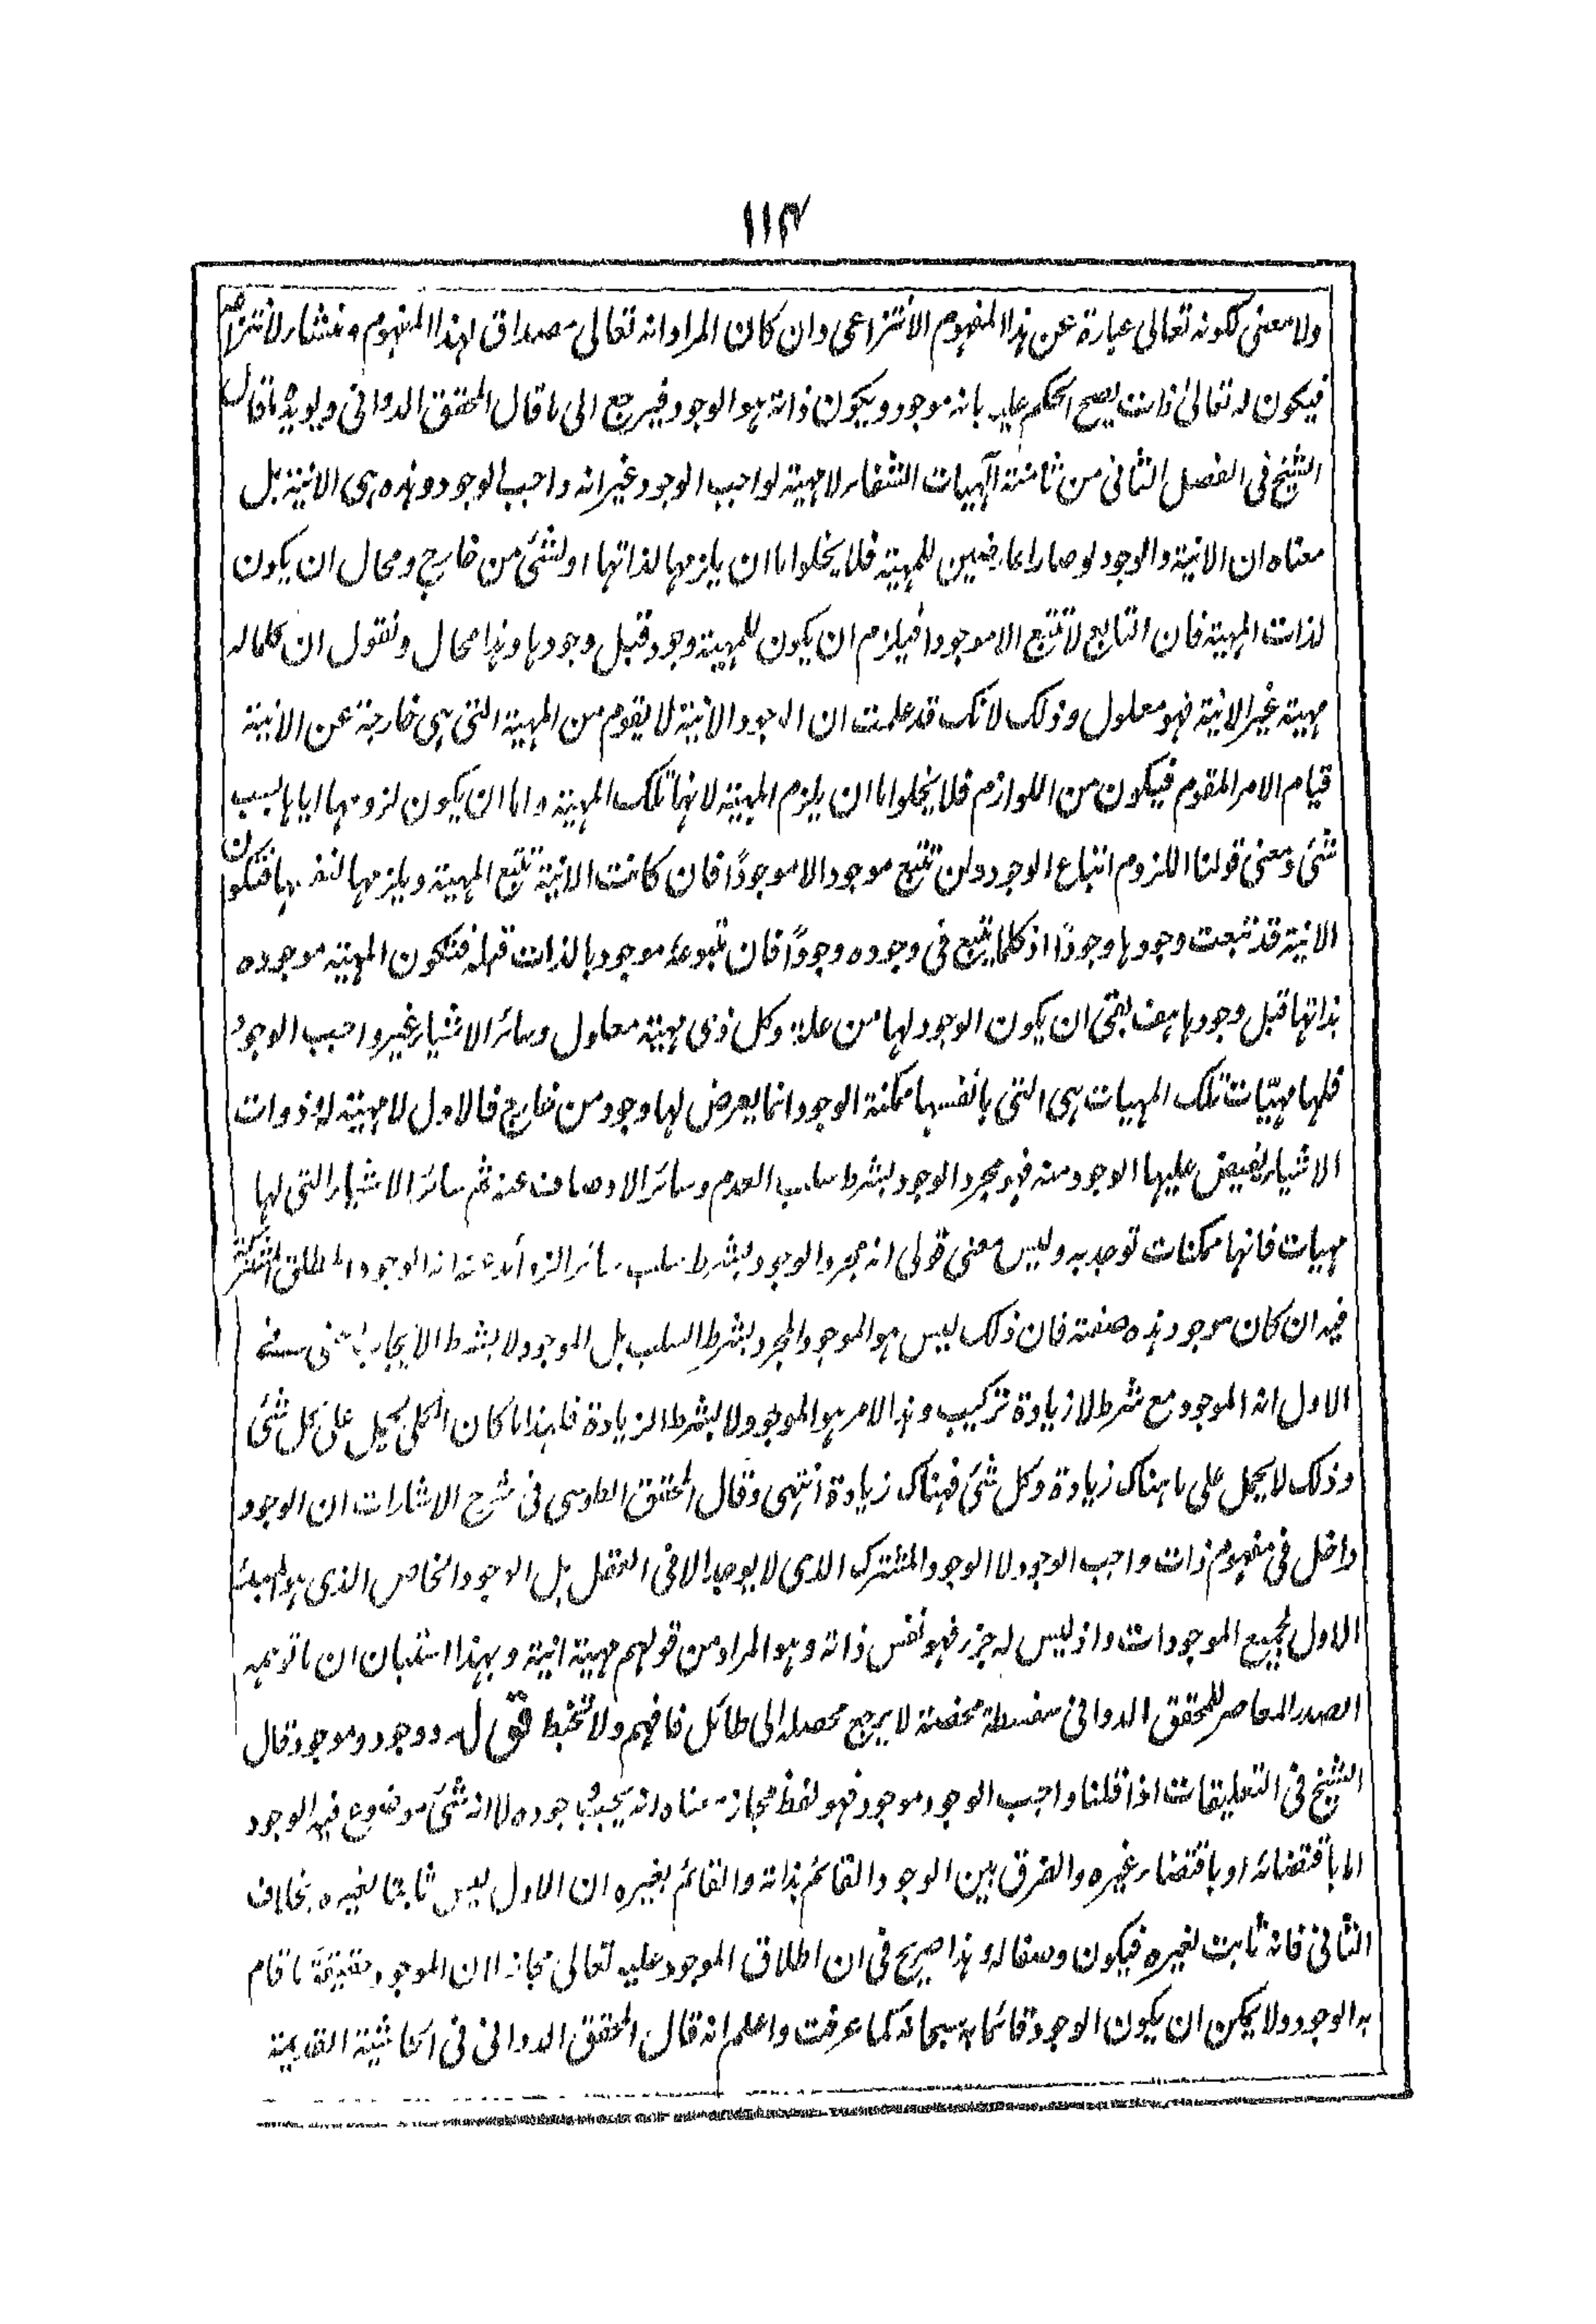 ١١٤
ولا معنى لكونه تعالى عبارة عن هذا المفهوم الانتزاعى وان كان المراد انه تعالى مصداق لهذا المفهوم ومنشاء لانتزاعه
فيكون له تعالى ذات يصح الحكم عليه بانه موجود ويكون ذاته هو الوجود فيرجع الى ما قال المحقق الدوانى ويؤيده ما قال
الشيخ فى الفصل الثانى من ثامنة آلهيات الشفاء لا مهية لواجب الوجود غير انه واجب الوجود وهذه هى الانية بل
معناه ان الانية والوجود لو صارا عارضين للمهية فلا يخلو اما ان يلزمها لذاتها او لشئ من خارج ومحال ان يكون
لذات المهية فان التابع لا تتبع الا موجودا فيلزم ان يكون للمهية وجود قبل وجودها وهذا محال ونقول ان كلما له
مهية غير الانية فهو معلول وذلك لانك قد علمت ان الوجود الانية لا يقوم من المهية التى هى خارجة عن الانية
قيام الامر المقوم فيكون من اللوازم فلا يخلو اما ان يلزم المهية لانها تلك المهية واما ان يكون لزومها اياها بسبب
شئ ومعنى قولنا اللزوم اتباع الوجود ولن تتبع موجود الا موجودًا فان كانت الانية تتبع المهية ويلزمها لنفسها فتكون
الانية قد تبعت وجودها وجودًا اذ كلما يتبع فى وجوده وجودًا فان متبوعه موجود بالذات قبله فتكون المهية موجوده
بذاتها قبل وجودها هف بقى ان يكون الوجود لها من علة وكل ذى مهية معلول وسائر الاشياء غير واجب الوجود
فلها مهيّات تلك المهيات هى التى بانفسها ممكنة الوجود انما يعرض لها وجود من خارج فالاول لا مهية له وذوات
الاشياء يفيض عليها الوجود منه فهو مجرد الوجود بشرط سلب العدم وسائر الاوصاف عنه ثم سائر الاشياء التى لها
مهيات فانها ممكنات توجد به وليس معنى قولى انه مجرد الوجود بشرط سلب سائر الزوائد عنه انه الوجود المطلق المشترك
فيه ان كان موجود هذه صفته فان ذلك ليس هو الموجود المجرد بشرط السلب بل الموجود لا بشرط الايجاب اعنى فى
الاول انه الموجود مع شرط لا زيادة تركيب وهذا الامر هو الموجود لا بشرط الزيادة فلهذا ما كان الكلى يحمل على كل شئ
وذلك لا يحمل على ما هناك زيادة وكل شئ فهناك زيادة انتهى وقال المحقق الطوسى فى شرح الاشارات ان الوجود
داخل فى مفهوم ذات واجب الوجود لا الوجود المشترك الذى لا يوجد الا فى العقل بل الوجود الخاص الذى هو المبدء
الاول لجميع الموجودات واذ ليس له جزء فهو نفس ذاته وهو المراد من قولهم مهية انية وبهذا استبان ان ما توهمه
الصدر المعاصر للمحقق الدوانى سفسطة محضة لا يرجع محصله الى طائل فافهم ولا تخبط قوله ووجود وموجود قال
الشيخ فى التعليقات اذا قلنا واجب الوجود موجود فهو لفظ مجاز معناه انه يجب وجوده لا انه شئ موضوع فيه الوجود
اما باقتضائه او باقتضاء غيره والفرق بين الوجود القائم بذاته والقائم بغيره ان الاول ليس ثابتا لغيره بخلاف
الثانى فانه ثابت لغيره فيكون وصفا له وهذا صريح فى ان اطلاق الموجود عليه تعالى مجاز اذ ان الموجود حقيقة ما قام
به الوجود ولا يمكن ان يكون الوجود قائما به سبحانه كما عرفت واعلم انه قال المحقق الدوانى فى الحاشية القديمة